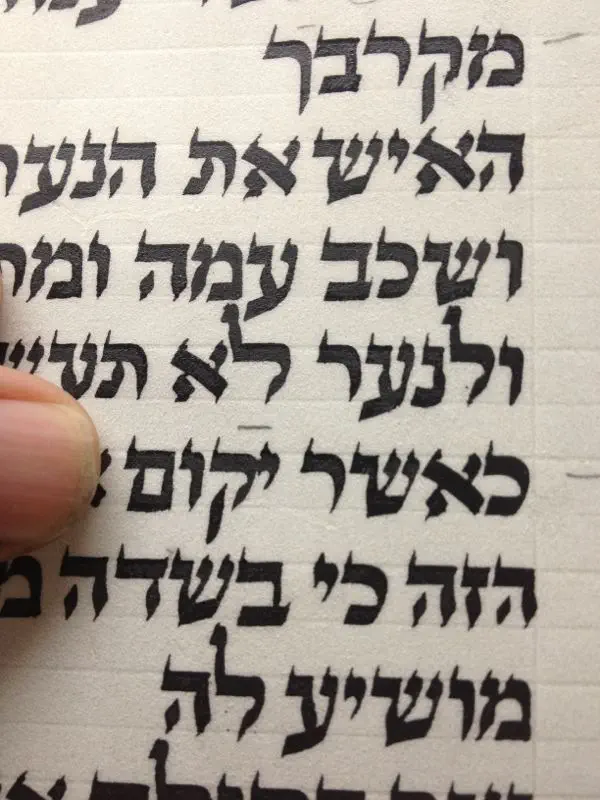 מקרבך
האיש את הנער
ושכב עמה ומת
ולנער לא תעש
כאשר יקום
הזה כי בשדה מ
מושיע לה